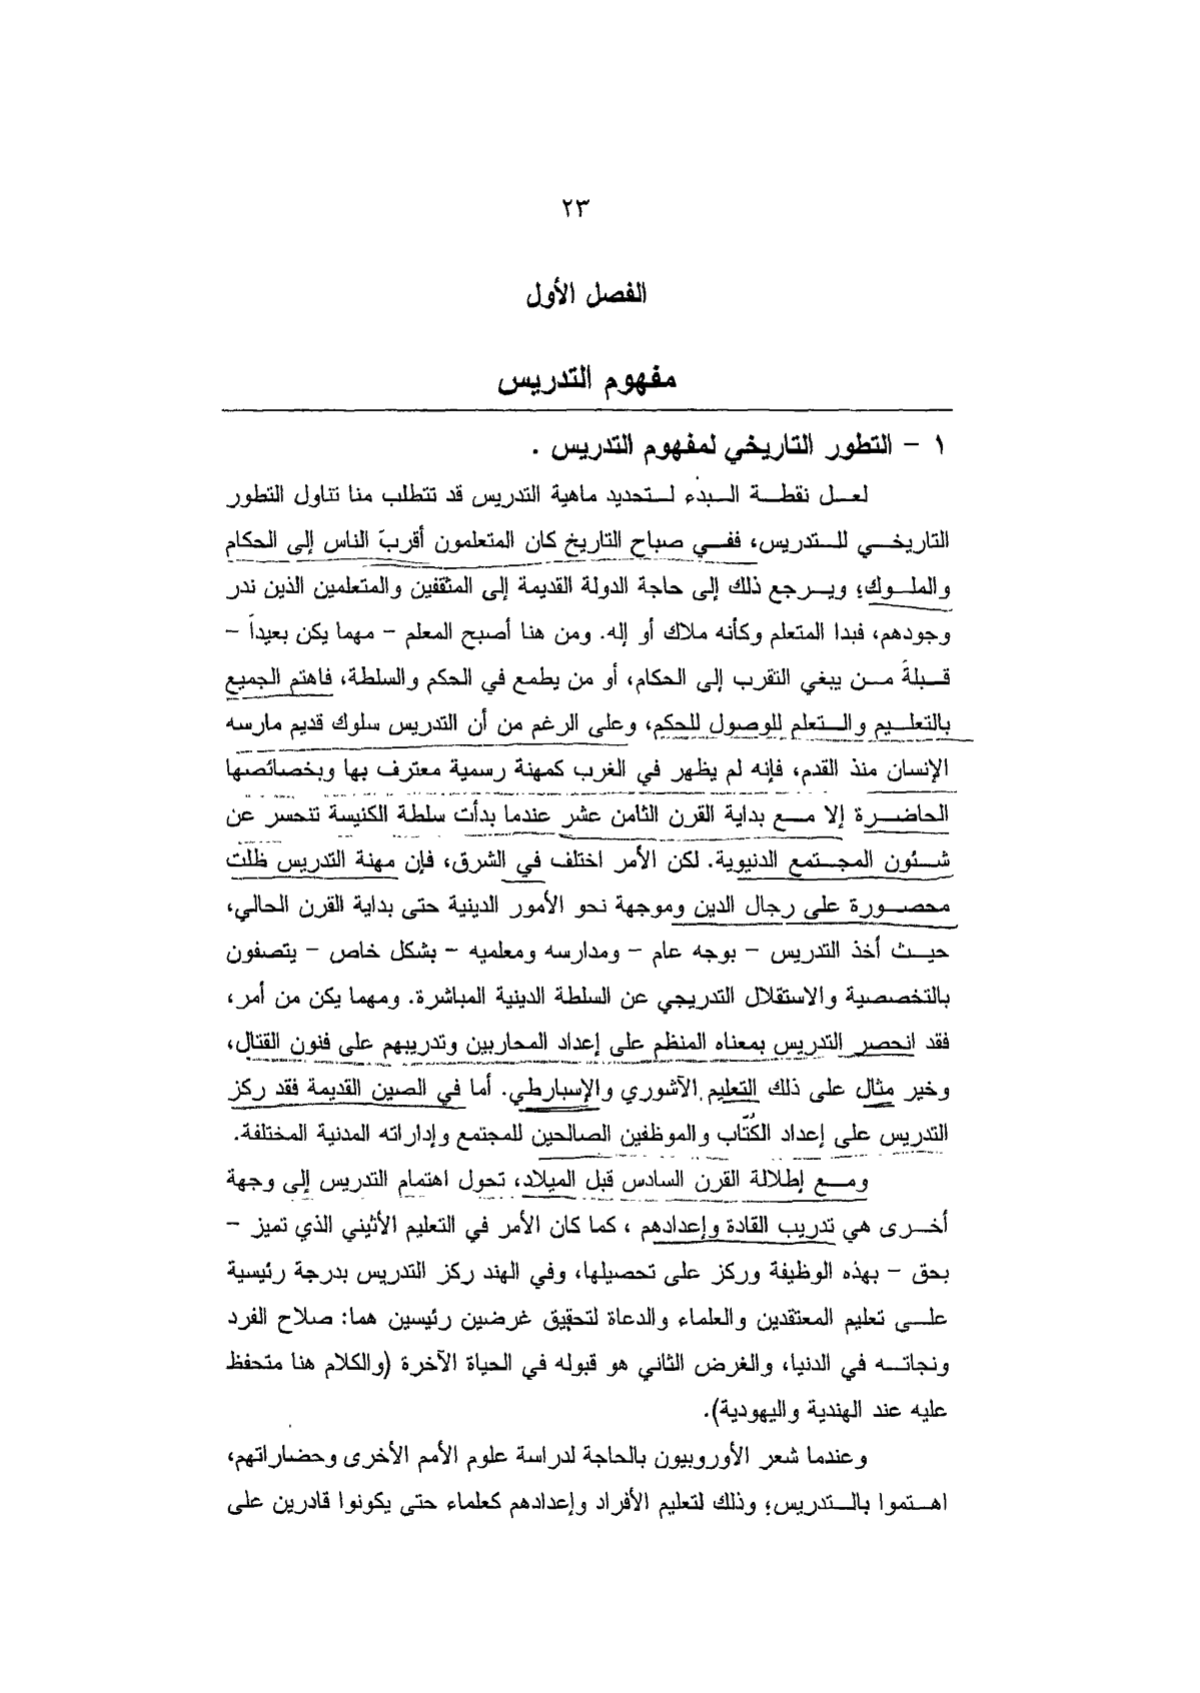 ٢٣
الفصل الأول
مفهوم التدريس
١ - التطور التاريخي لمفهوم التدريس .
لعل نقطة البدء لتحديد ماهية التدريس قد تتطلب منا تناول التطور
التاريخي للتدريس، ففي صباح التاريخ كان المتعلمون أقربَ الناس إلى الحكام
والملوك؛ ويرجع ذلك إلى حاجة الدولة القديمة إلى المثقفين والمتعلمين الذين ندر
وجودهم، فبدا المتعلم وكأنه ملاك أو إله. ومن هنا أصبح المعلم - مهما يكن بعيداً -
قبلةَ من يبغي التقرب إلى الحكام، أو من يطمع في الحكم والسلطة، فاهتم الجميع
بالتعليم والتعلم للوصول للحكم، وعلى الرغم من أن التدريس سلوك قديم مارسه
الإنسان منذ القدم، فإنه لم يظهر في الغرب كمهنة رسمية معترف بها وبخصائصها
الحاضرة إلا مع بداية القرن الثامن عشر عندما بدأت سلطة الكنيسة تنحسر عن
شئون المجتمع الدنيوية. لكن الأمر اختلف في الشرق، فإن مهنة التدريس ظلت
محصورة على رجال الدين وموجهة نحو الأمور الدينية حتى بداية القرن الحالي،
حيث أخذ التدريس - بوجه عام - ومدارسه ومعلميه - بشكل خاص - يتصفون
بالتخصصية والاستقلال التدريجي عن السلطة الدينية المباشرة. ومهما يكن من أمر،
فقد انحصر التدريس بمعناه المنظم على إعداد المحاربين وتدريبهم على فنون القتال،
وخير مثال على ذلك التعليم الآشوري والإسبارطي. أما في الصين القديمة فقد ركز
التدريس على إعداد الكُتّاب والموظفين الصالحين للمجتمع وإداراته المدنية المختلفة.
ومع إطلالة القرن السادس قبل الميلاد، تحول اهتمام التدريس إلى وجهة
أخرى هي تدريب القادة وإعدادهم ، كما كان الأمر في التعليم الأثيني الذي تميز -
بحق - بهذه الوظيفة وركز على تحصيلها، وفي الهند ركز التدريس بدرجة رئيسية
على تعليم المعتقدين والعلماء والدعاة لتحقيق غرضين رئيسين هما: صلاح الفرد
ونجاته في الدنيا، والغرض الثاني هو قبوله في الحياة الآخرة (والكلام هنا متحفظ
عليه عند الهندية واليهودية).
وعندما شعر الأوروبيون بالحاجة لدراسة علوم الأمم الأخرى وحضاراتهم،
اهتموا بالتدريس؛ وذلك لتعليم الأفراد وإعدادهم كعلماء حتى يكونوا قادرين على